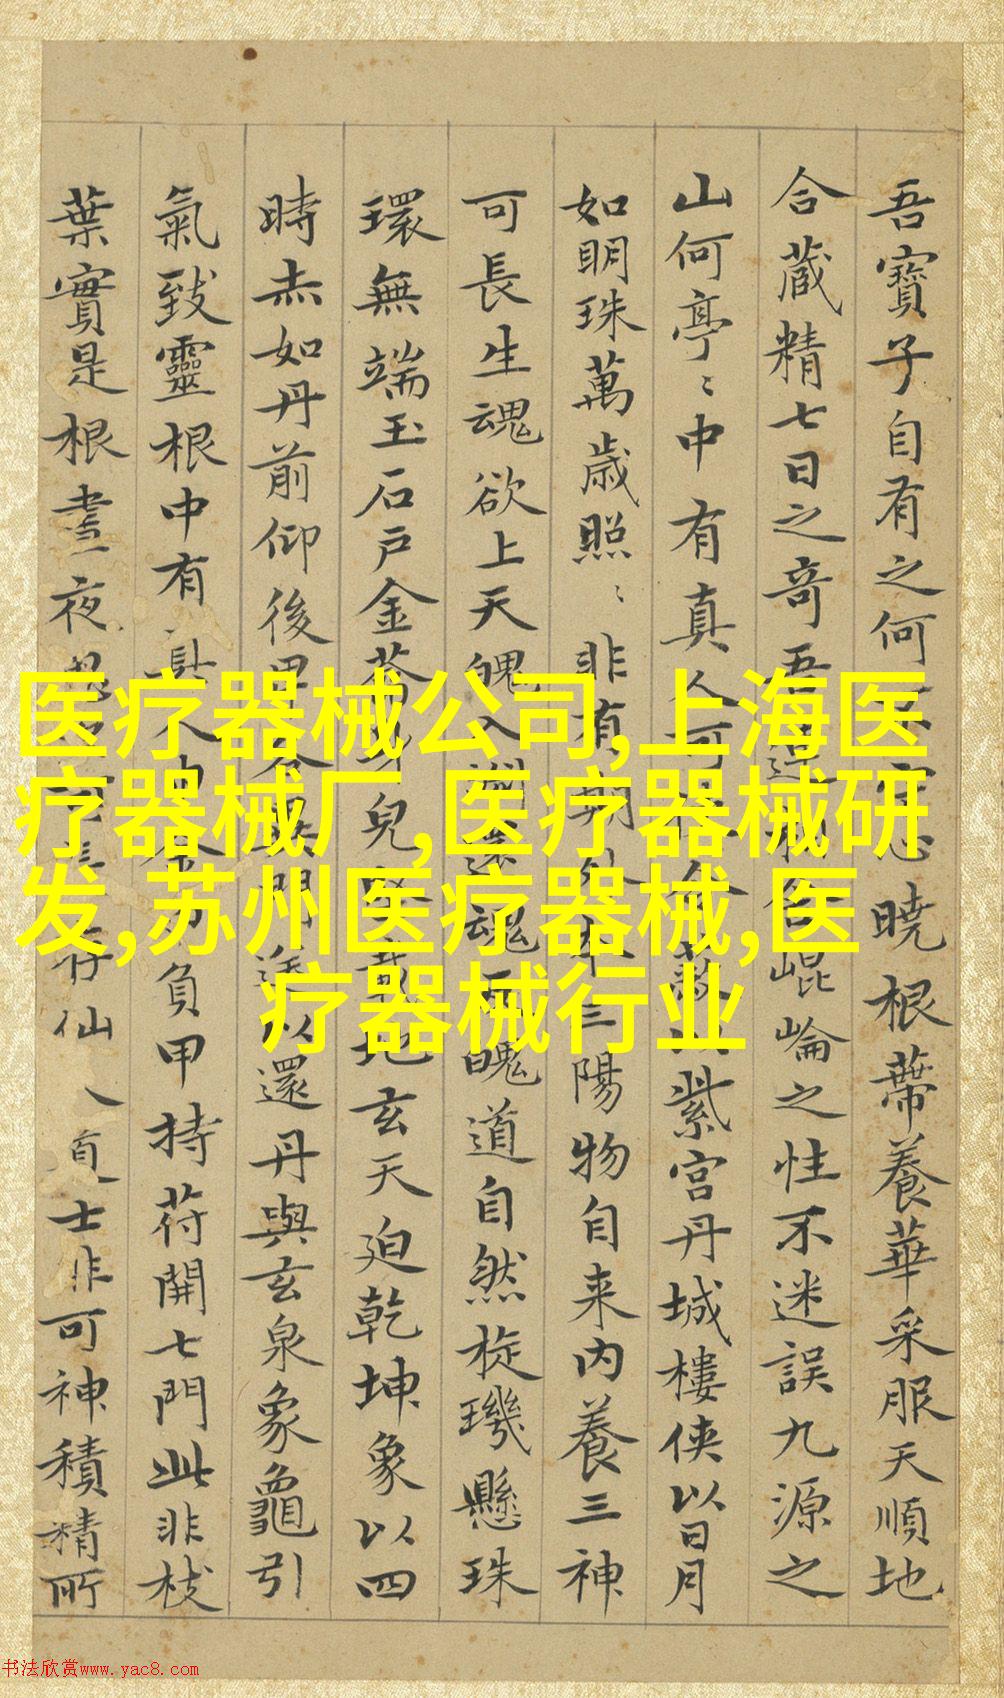 吾寶子自有之何
心曉根蔕養華采服天順地
合藏精七日之奇吾
崐崘之性不迷誤九源之
山何亭〻中有真人可
紫宮丹城樓俠以日月
如明珠萬歲照〻非有
三陽物自来内養三神
可長生魂欲上天魄入
還魂
魄道自然旋璣懸珠
環無端玉石戶金
兒
載地玄天迫乾坤象以四
時赤如丹前仰後
門送以還丹與玄泉象龜引
氣致靈根中有真人
負甲持苻開七門此非枝
葉實是根晝夜思
仙人道士非可神積精所
医疗器械公司,上海医
疗器械厂,医疗器械研
发,苏州医疗器械,医
疗器械行业
书法欣赏www.yac8.com